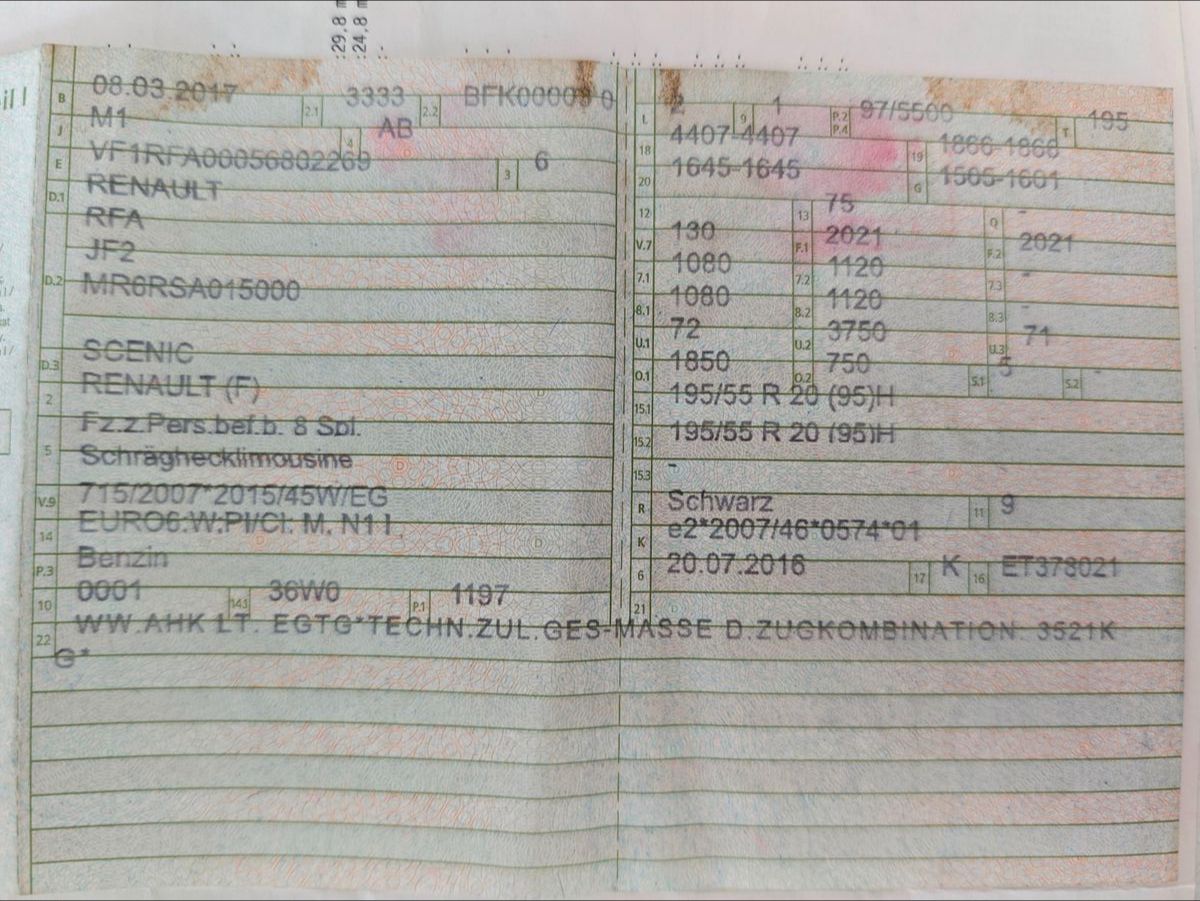 :29,8 m
:24,8 m
B 08.03.2017 2.1 3333 2.2
J M1 4 AB
E VF1RFA00056802269 3 6
D.1 RENAULT
RFA
JF2
D.2 MR6RSA015000
D.3 SCENIC
2 RENAULT (F)
Fz.z.Pers.bef.b. 8 Spl.
5 Schräghecklimousine
V.9 715/2007*2015/45W/EG
14 EURO6:W:PI/CI: M, N1 I
P.3 Benzin
10 0001 14.1 36W0 P.1 1197
L 2 9 1 P.2 P.4 97/5500 T 195
18 4407-4407 19 1866-1866
20 1645-1645 G 1505-1601
12 13 75 Q -
V.7 130 F.1 2021 F.2 2021
7.1 1080 7.2 1120 7.3 -
8.1 1080 8.2 1120 8.3 -
U.1 72 U.2 3750 U.3 71
O.1 1850 O.2 750 S.1 5 S.2 -
15.1 195/55 R 20 (95)H
15.2 195/55 R 20 (95)H
15.3 -
R Schwarz 11 9
K e2*2007/46*0574*01
6 20.07.2016 17 K 16 ET378021
21
22 WW.AHK LT. EGTG*TECHN.ZUL.GES-MASSE D.ZUGKOMBINATION: 3521K
G*